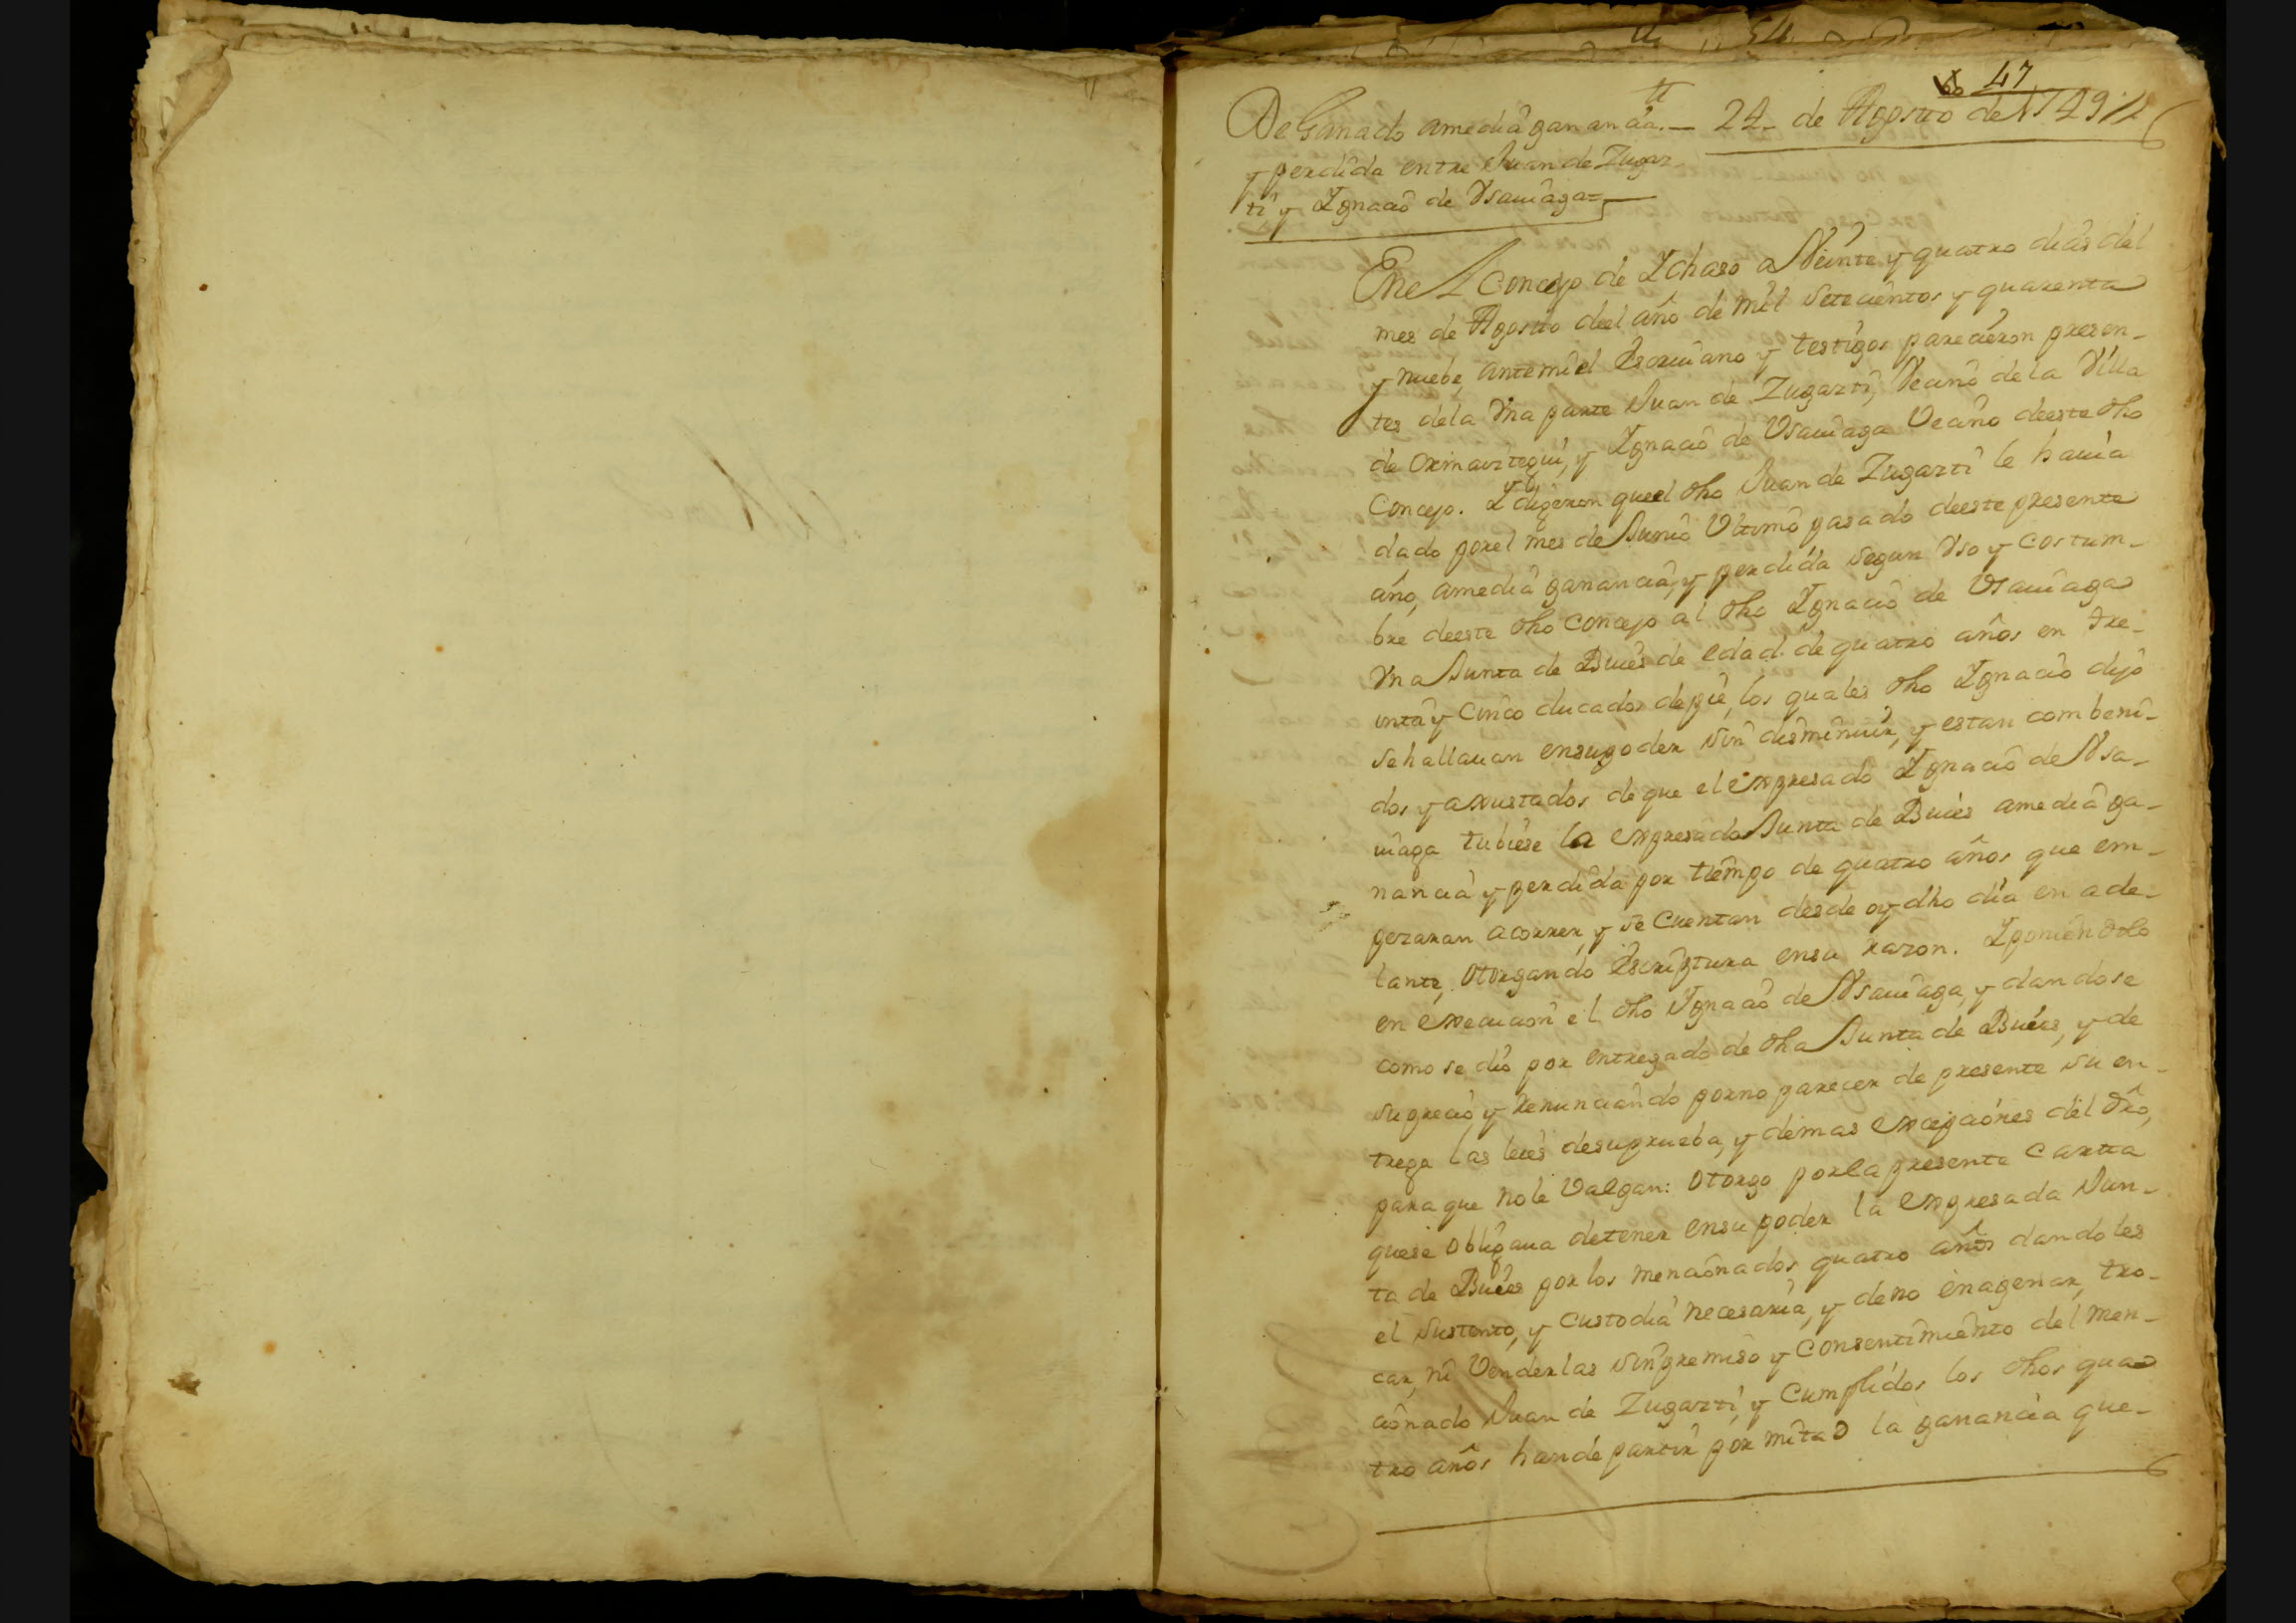 47
De Ganado amedia ganancia.— 24 de Agosto de 1749
y perdida entre Juan de Zugar-
ti, y Ygnacio de Vsauiaga=
En el Concejo de Ychaso a Veinte y quatro dias del
mes de Agosto deel año de mil setecientos y quarenta
y nuebe, antemi el Escriuano y testigos parecieron presen-
tes dela Vna parte Juan de Zugarti, Vecino dela Villa
de Ormaiztegui, y Ygnacio de Vsauiaga Vecino deeste dho
Concejo. Y digeron queel dho Juan de Zugarti le hauia
dado porel mes de Junio Vltimo pasado deeste presente
año, amedia ganancia, y perdida segun Vso y costum-
bre deeste dho concejo al dho Ygnacio de Vsauiaga
Vna Junta de Bueies de edad de quatro años en tre-
inta y cinco ducados depie, los quales dho Ygnacio dijo
se hallauan ensupoder sin disminuir, y estan combeni-
dos y axustados de que el expresado Ygnacio de Vsa-
uiaga tubiese la expresada Junta de Bueies amedia ga-
nancia y perdida por tiempo de quatro años que em-
pezaran acorrer, y se cuentan desde oy dho dia en ade-
lante, otorgando Escriptura ensu razon. Y poniendolo
en execucion el dho Ygnacio de Vsauiaga, y dandose
como se dio por entregado de dha Junta de Bueies, y de
su precio y renunciando porno parecer de presente su en-
trega las leies desuprueba, y demas excepciones del dro,
para que nole Valgan: otorgo porla presente carta
quese obligaua detener ensu poder la expresada Jun-
ta de Bueies por los mencionados quatro años dandoles
el sustento, y custodia necesaria, y deno enagenar, tro-
car, ni Venderlas sin premiso y consentimiento del men-
cionado Juan de Zugarti, y Cumplidos los dhos qua
tro años hande partir por mitad la ganancia que-